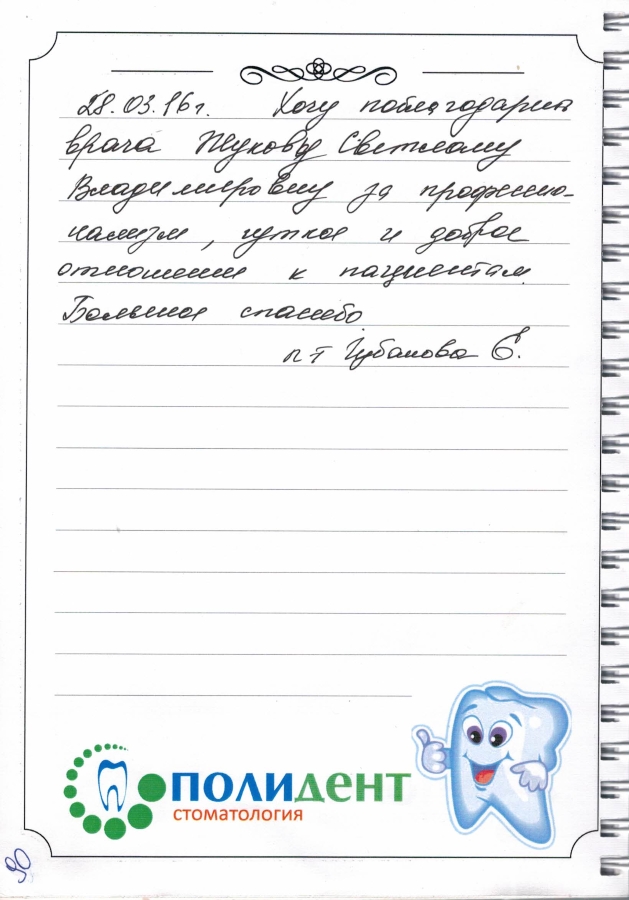 28.03.16г. Хочу поблагодарить
врача Жукову Светлану
Владимировну за профессио-
нализм, чуткое и доброе
отношение к пациентам.
Большое спасибо
п-т Губанова Е.
ПОЛИДЕНТ
стоматология
90